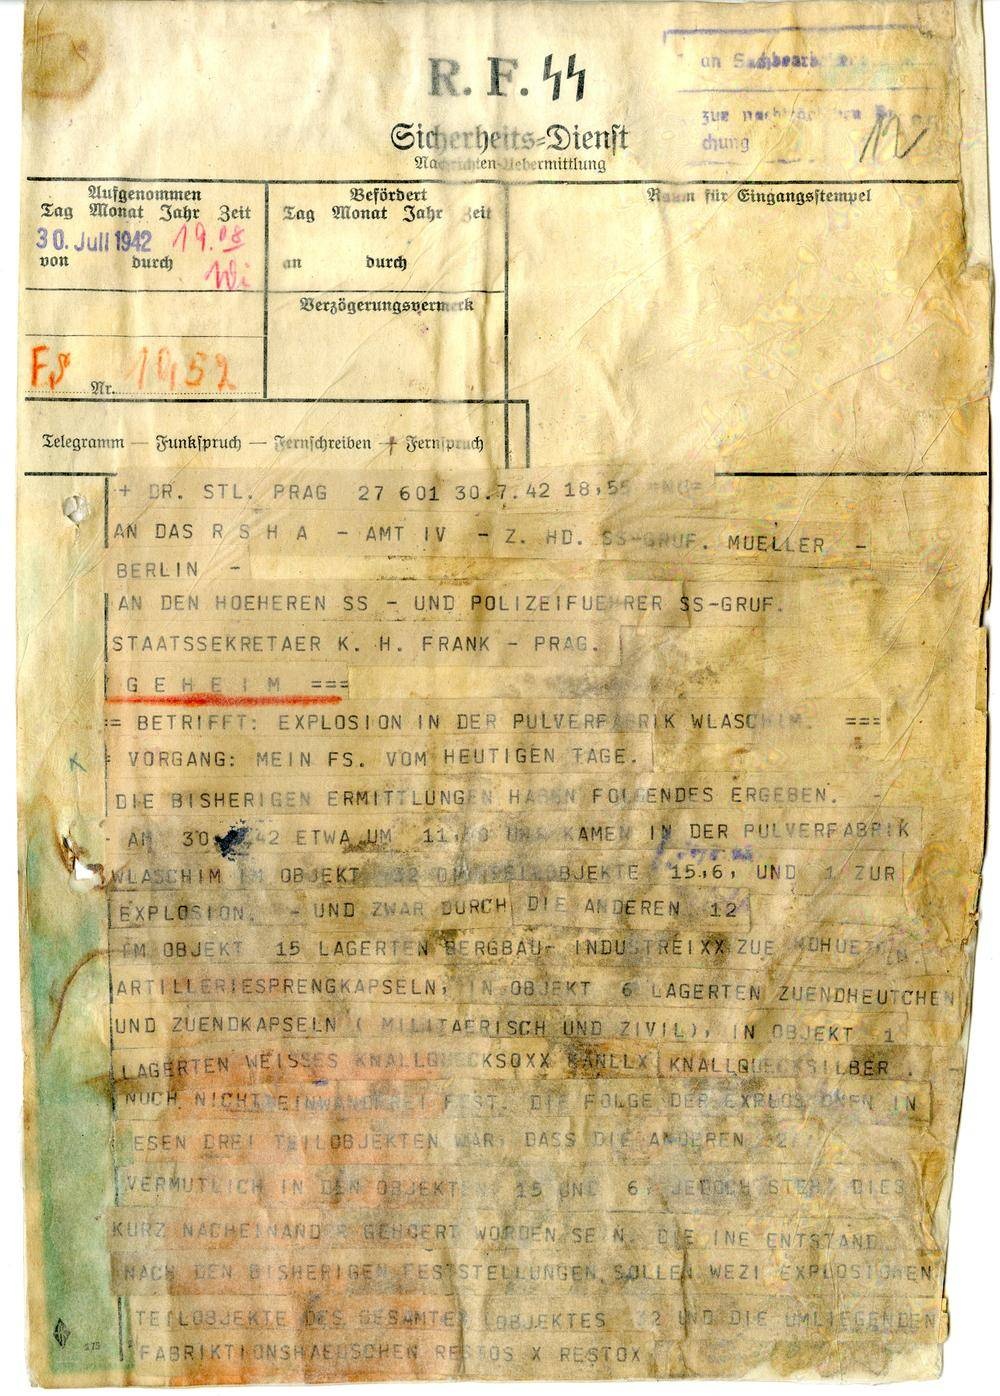 an
zur
chung
12
R. F. SS
Sicherheits-Dienst
Nachrichten-Uebermittlung
Aufgenommen
Tag Monat Jahr Zeit
30. Juli 1942 19.08
von durch
Wi
Befördert
Tag Monat Jahr Zeit
an durch
Verzögerungsvermerk
Raum für Eingangsstempel
FS Nr. 1952
Telegramm — Funkspruch — Fernschreiben + Fernspruch
+ DR. STL. PRAG 27 601 30.7.42 18,55 =NU=
AN DAS R S H A - AMT IV - Z. HD. SS-GRUF. MUELLER -
BERLIN -
AN DEN HOEHEREN SS - UND POLIZEIFUEHRER SS-GRUF.
STAATSSEKRETAER K. H. FRANK - PRAG.
G E H E I M ===
= BETRIFFT: EXPLOSION IN DER PULVERFABRIK WLASCHIM. ===
VORGANG: MEIN FS. VOM HEUTIGEN TAGE.
DIE BISHERIGEN ERMITTLUNGEN HABEN FOLGENDES ERGEBEN. -
- AM 30 42 ETWA UM KAMEN IN DER PULVERFABRIK
WLASCHIM IM OBJEKT 32 15,6, UND 1 ZUR
EXPLOSION. - UND ZWAR DURCH DIE ANDEREN 12
IM OBJEKT 15 LAGERTEN BERGBAU- INDUSTREIXX
ARTILLERIESPRENGKAPSELN, IN OBJEKT 6 LAGERTEN ZUENDHEUTCHEN
UND ZUENDKAPSELN ( MILITAERISCH UND ZIVIL), IN OBJEKT 1
LAGERTEN WEISSES KNALLQUECKSOXX KANLLX KNALLQUECKSILBER .
NOCH NICHT EINWANDFREI FEST. DIE FOLGE DER EXPLOSIONEN IN
ESEN DREI TEILOBJEKTEN WAR, DASS DIE ANDEREN
VERMUTLICH IN DEN OBJEKTEN 15 UND 6, JEDOCH STEHT DIES
KURZ NACHEINANDER GEHOERT WORDEN SEIN. DIE INE ENTSTAND
NACH DEN BISHERIGEN FESTSTELLUNGEN SOLLEN WEZI EXPLOSIONEN
TEILOBJEKTE DES GESAMTEN OBJEKTES 32 UND DIE UMLIEGENDEN
FABRIKTIONSHAEUSCHEN RESTOS X RESTOX